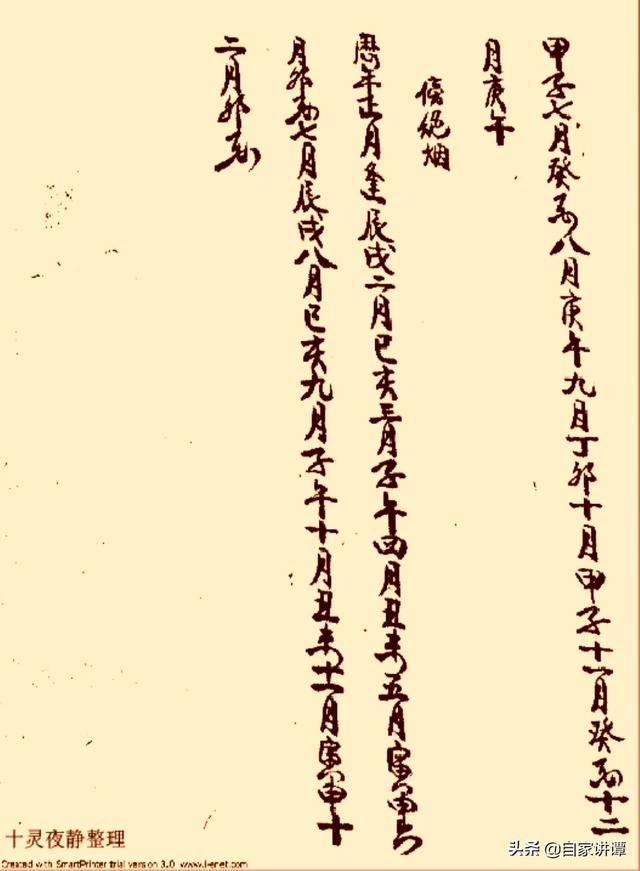 甲子七月癸酉八月庚午九月丁卯十月甲子十一月癸酉十二
月庚午
傍绝烟
曆年正月逢辰戌二月巳亥三月子午四月丑未五月寅申六
月卯酉七月辰戌八月巳亥九月子午十月丑未十一月寅申十
二月卯酉
十灵夜静整理
Created with SmartPrinter trial version 3.0 www.i-enet.com
头条 @自家讲谭